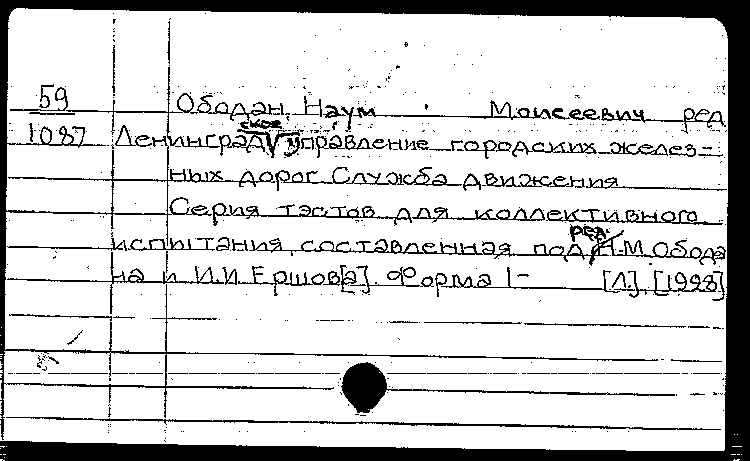 59
1087
Ободан, Наум Моисеевич ред
Ленинградское управление городских желез-
ных дорог Служба движения
Серия тэстов для коллективного
испытания, составленная под ред. Н.М. Обода
на и И.И Ершов[а]. Форма 1- [Л.], [1928]